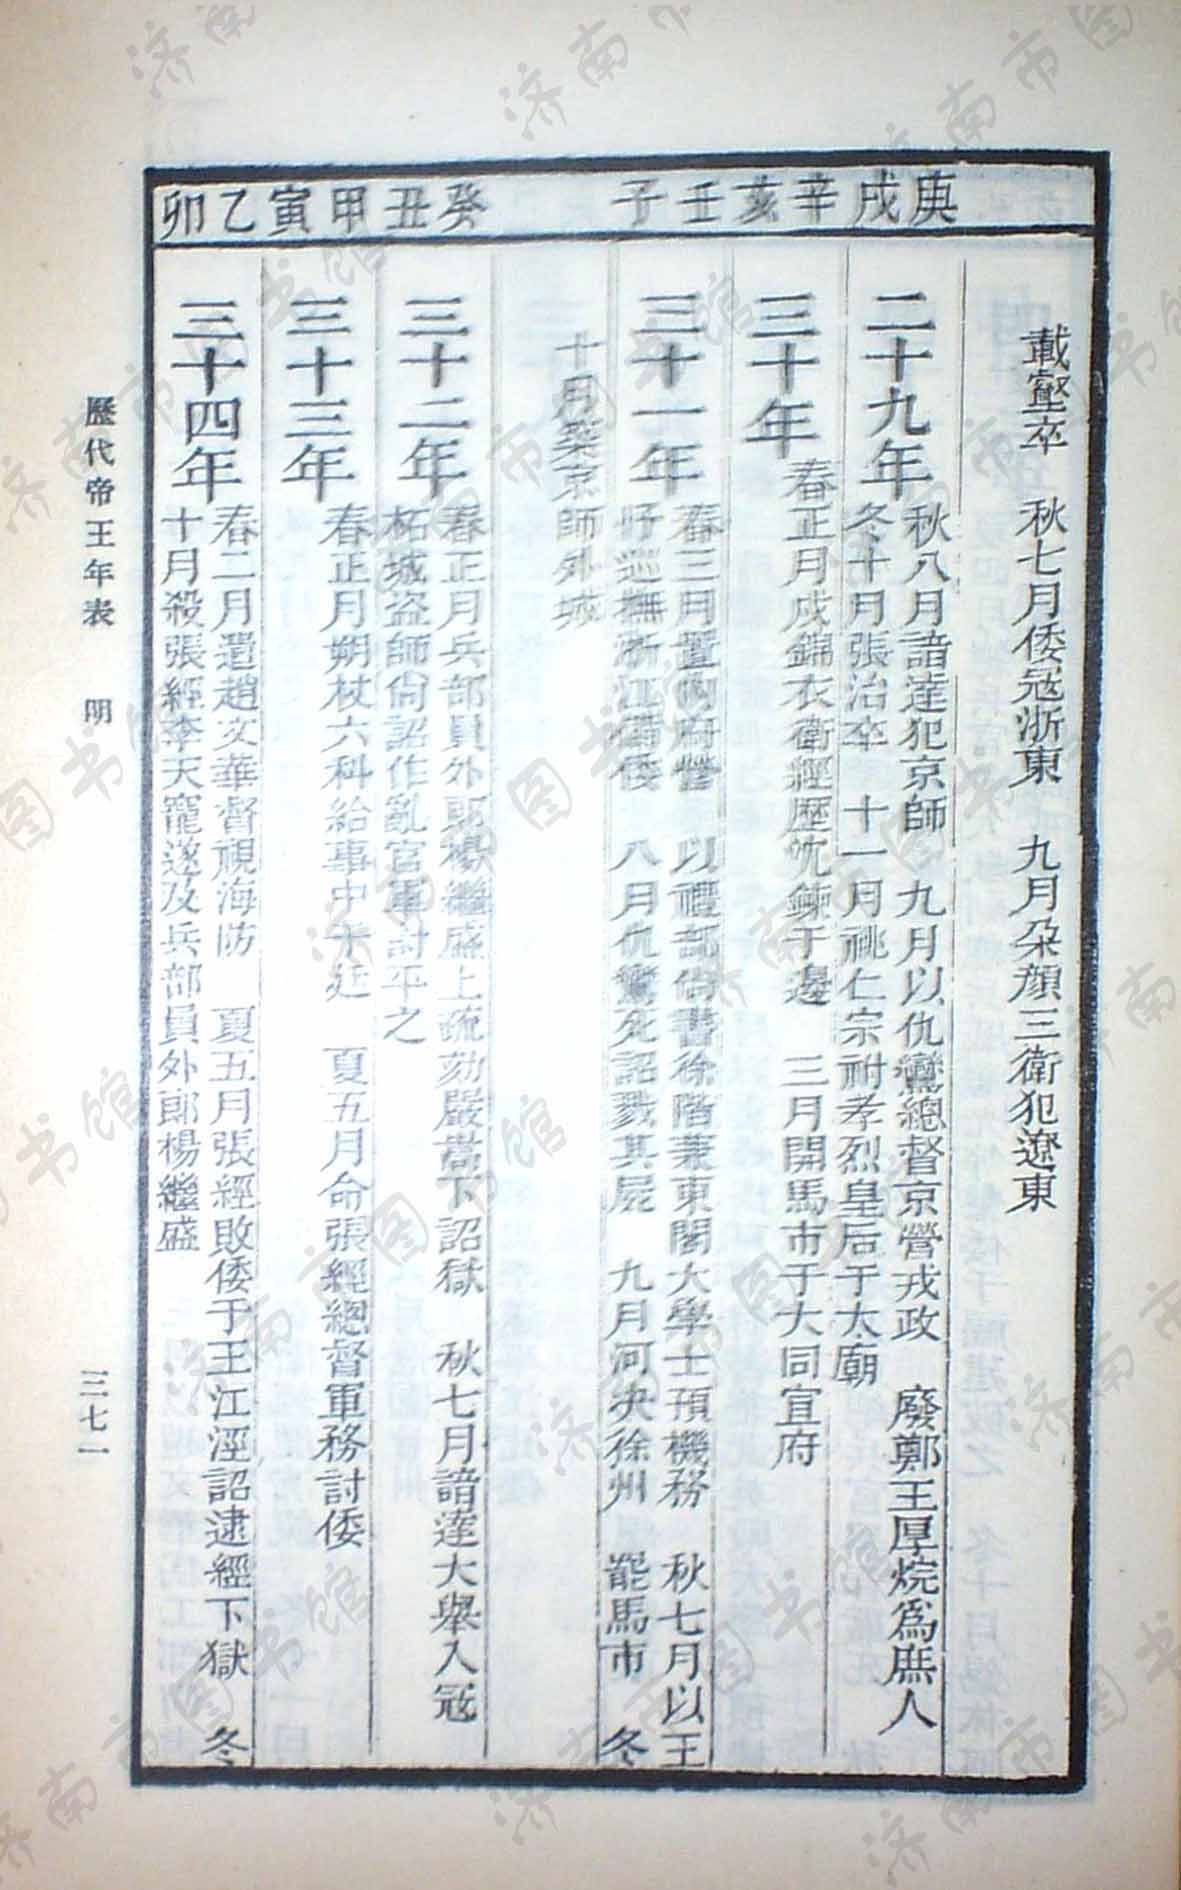 庚戌 辛亥 壬子 癸丑 甲寅 乙卯
載壡卒 秋七月倭寇浙東 九月朶顏三衛犯遼東
二十九年
秋八月諳達犯京師 九月以仇鸞總督京營戎政 廢鄭王厚烷爲庶人
冬十月張治卒 十一月祧仁宗祔孝烈皇后于太廟
三十年
春正月戍錦衣衛經歷沈鍊于邊 三月開馬市于大同宣府
三十一年
春三月置內府營 以禮部尙書徐階兼東閣大學士預機務 秋七月以王
忬巡撫浙江備倭 八月仇鸞死詔戮其屍 九月河决徐州 罷馬市 冬
十月築京師外城
三十二年
春正月兵部員外郎楊繼盛上疏劾嚴嵩下詔獄 秋七月諳達大舉入寇
柘城盜師尙詔作亂官軍討平之
三十三年
春正月朔杖六科給事中于廷 夏五月命張經總督軍務討倭
三十四年
春二月遣趙文華督視海防 夏五月張經敗倭于王江涇詔逮經下獄 冬
十月殺張經李天寵遂及兵部員外郎楊繼盛
歷代帝王年表 明
三七一
济南市图书馆